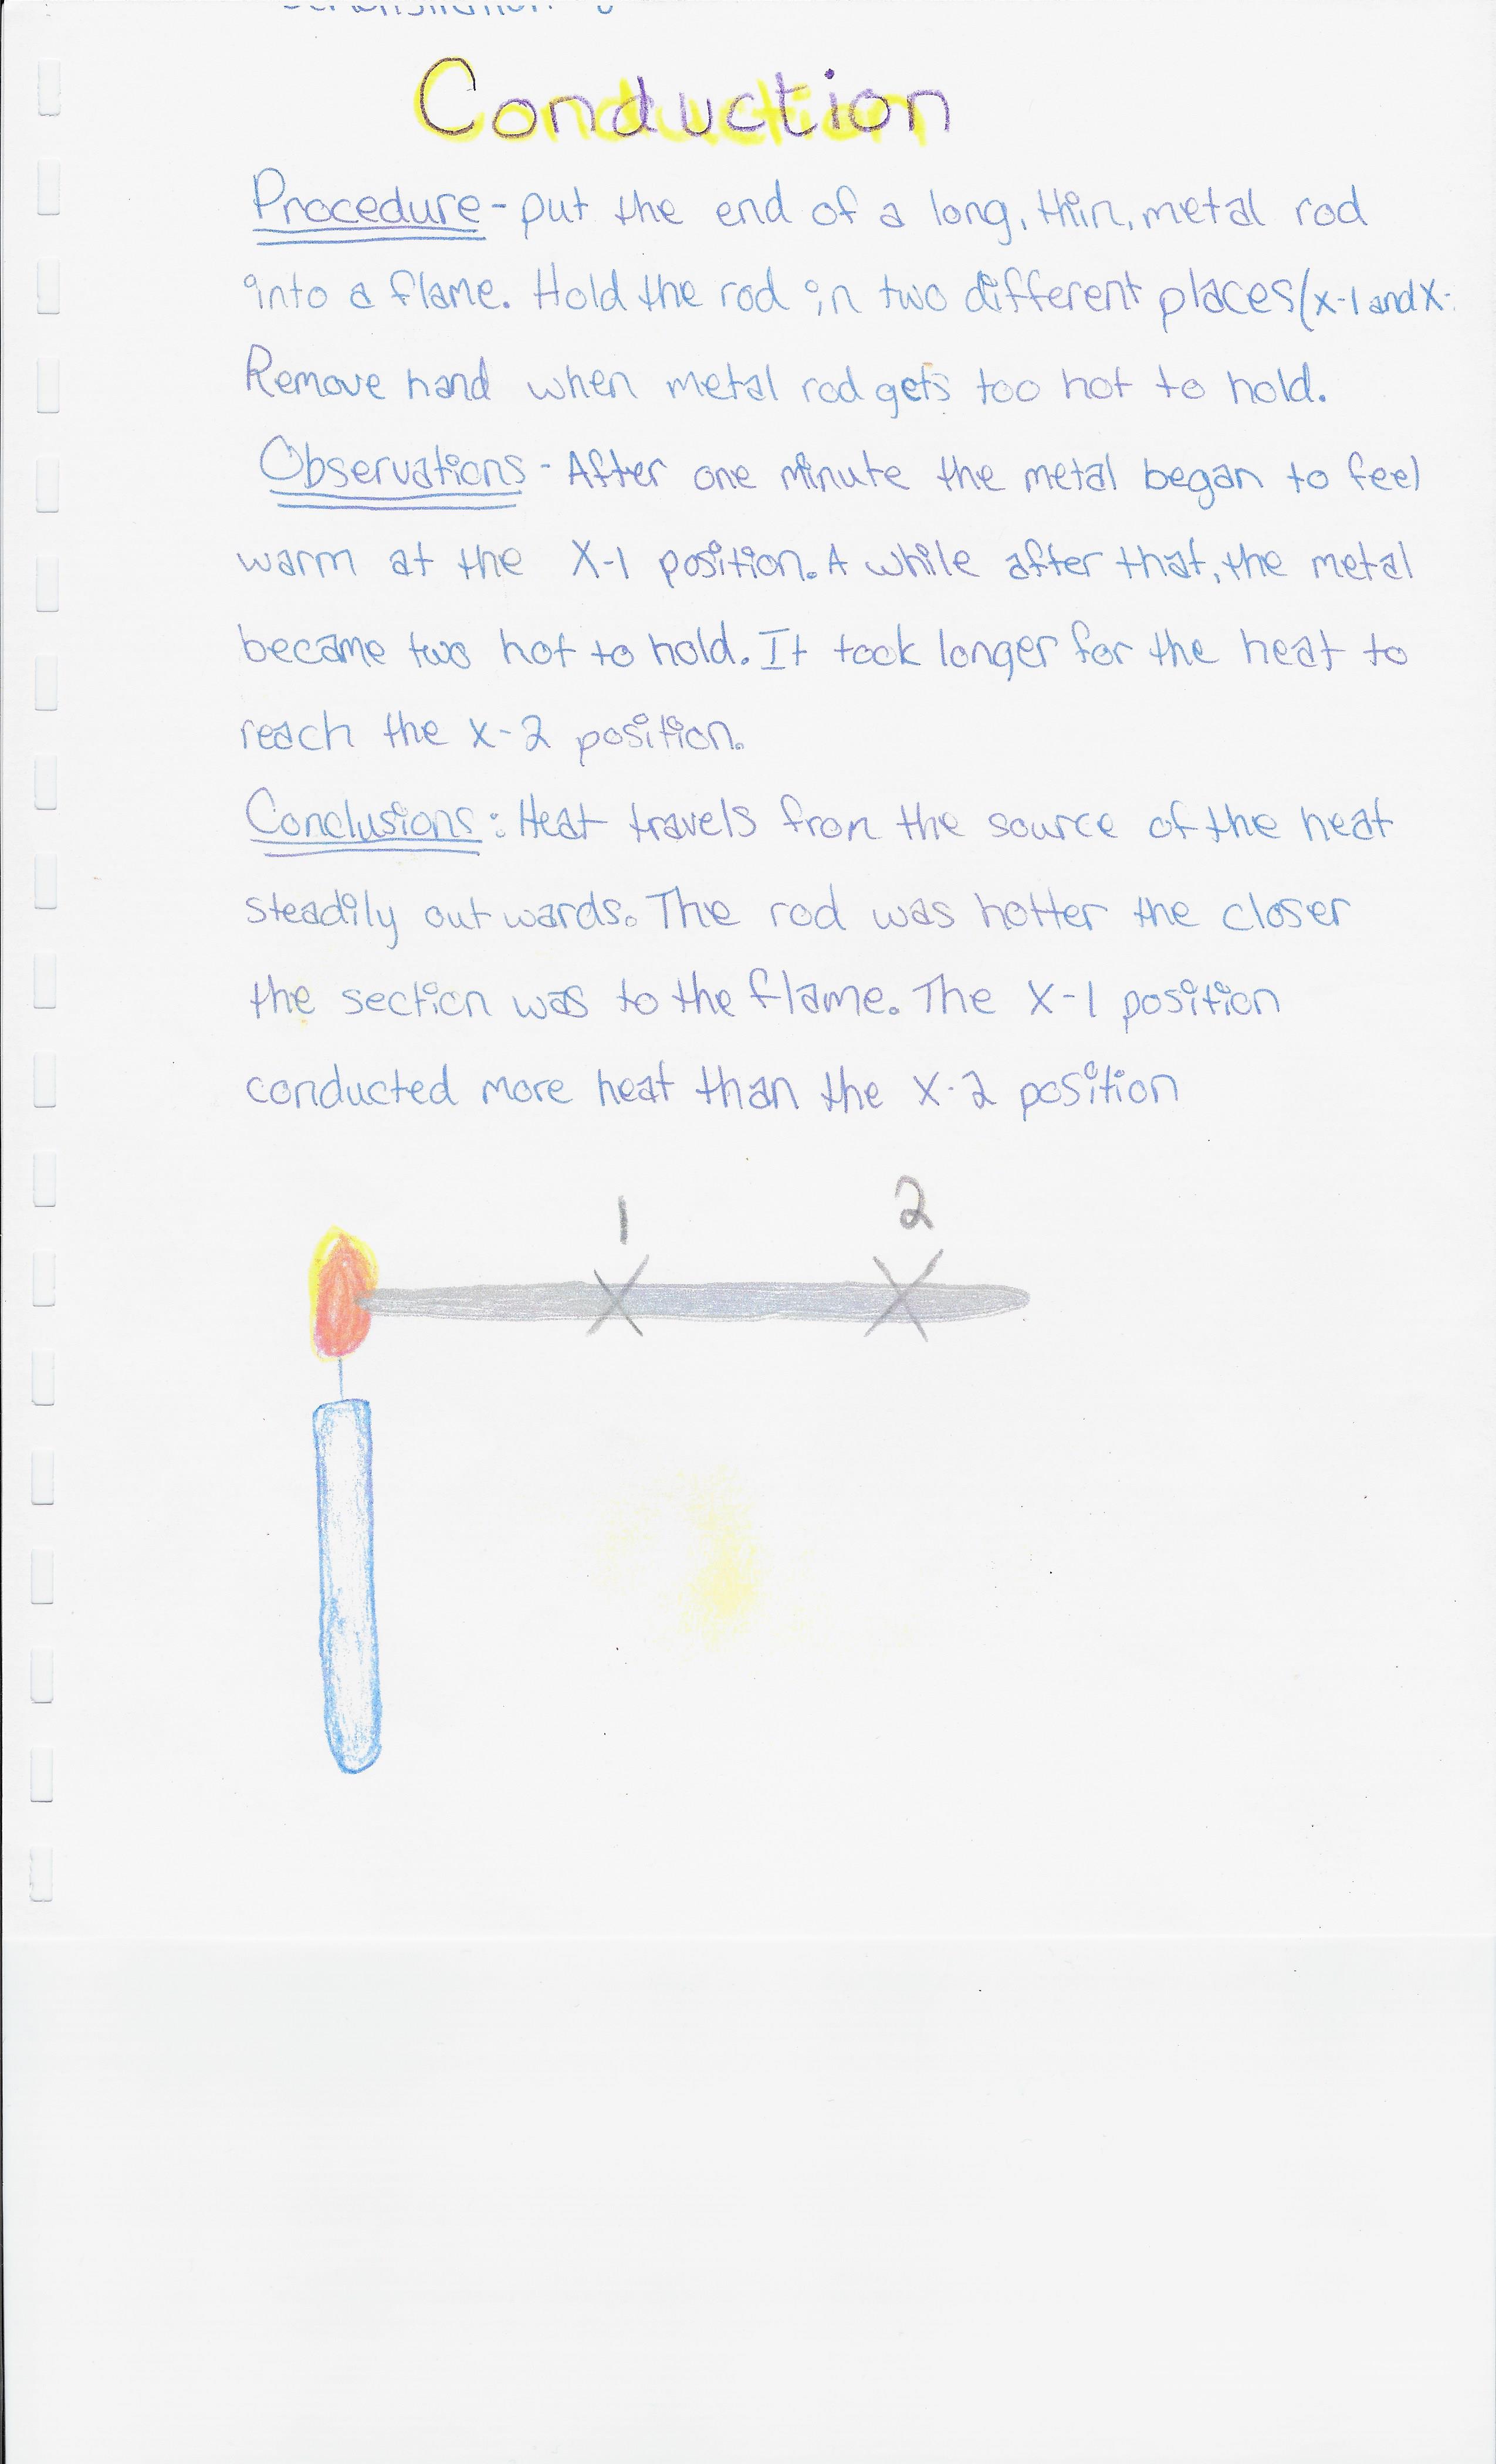 Conduction
Procedure - put the end of a long, thin, metal rod
into a flame. Hold the rod in two different places (x-1 and X-
Remove hand when metal rod gets too hot to hold.
Observations - After one minute the metal began to feel
warm at the X-1 position. A while after that, the metal
became two hot to hold. It took longer for the heat to
reach the x-2 position.
Conclusions: Heat travels from the source of the heat
steadily outwards. The rod was hotter the closer
the section was to the flame. The X-1 position
conducted more heat than the X-2 position
1 2